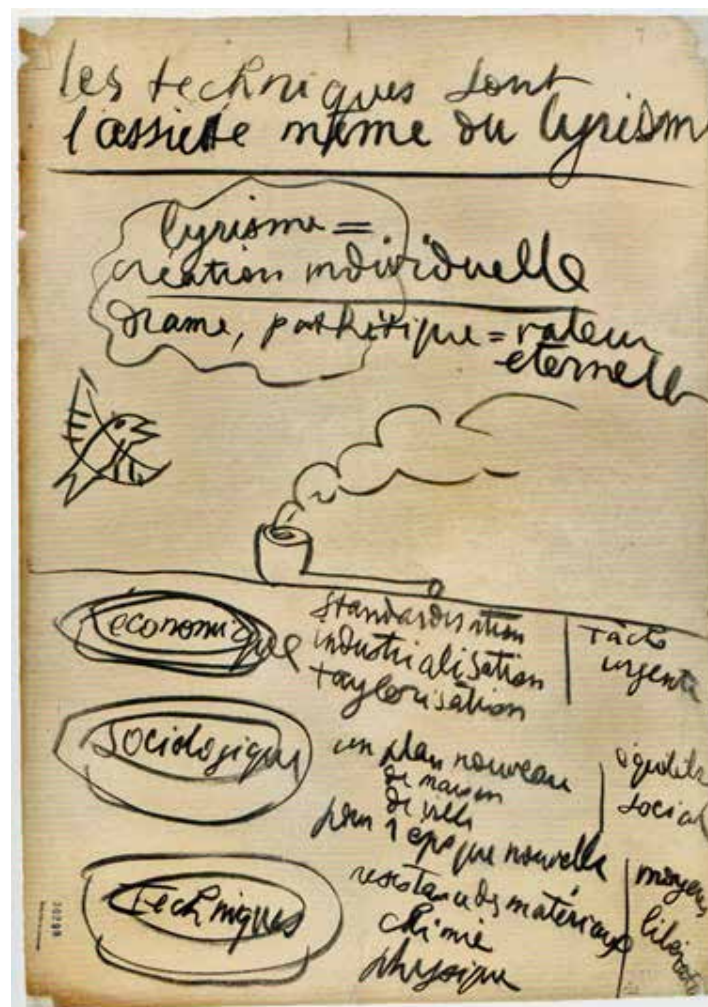 les techniques sont
l'assiette même du lyrism
lyrisme =
création individuelle
drame, pathétique = valeur
eternell
économique
standardisation
industrialisation
taylorisation
tâche
urgente
sociologique
un plan nouveau
de maison
de ville
pour 1 epoque nouvelle
équilibre
social
techniques
resistance des matériaux
chimie
physique
moyens